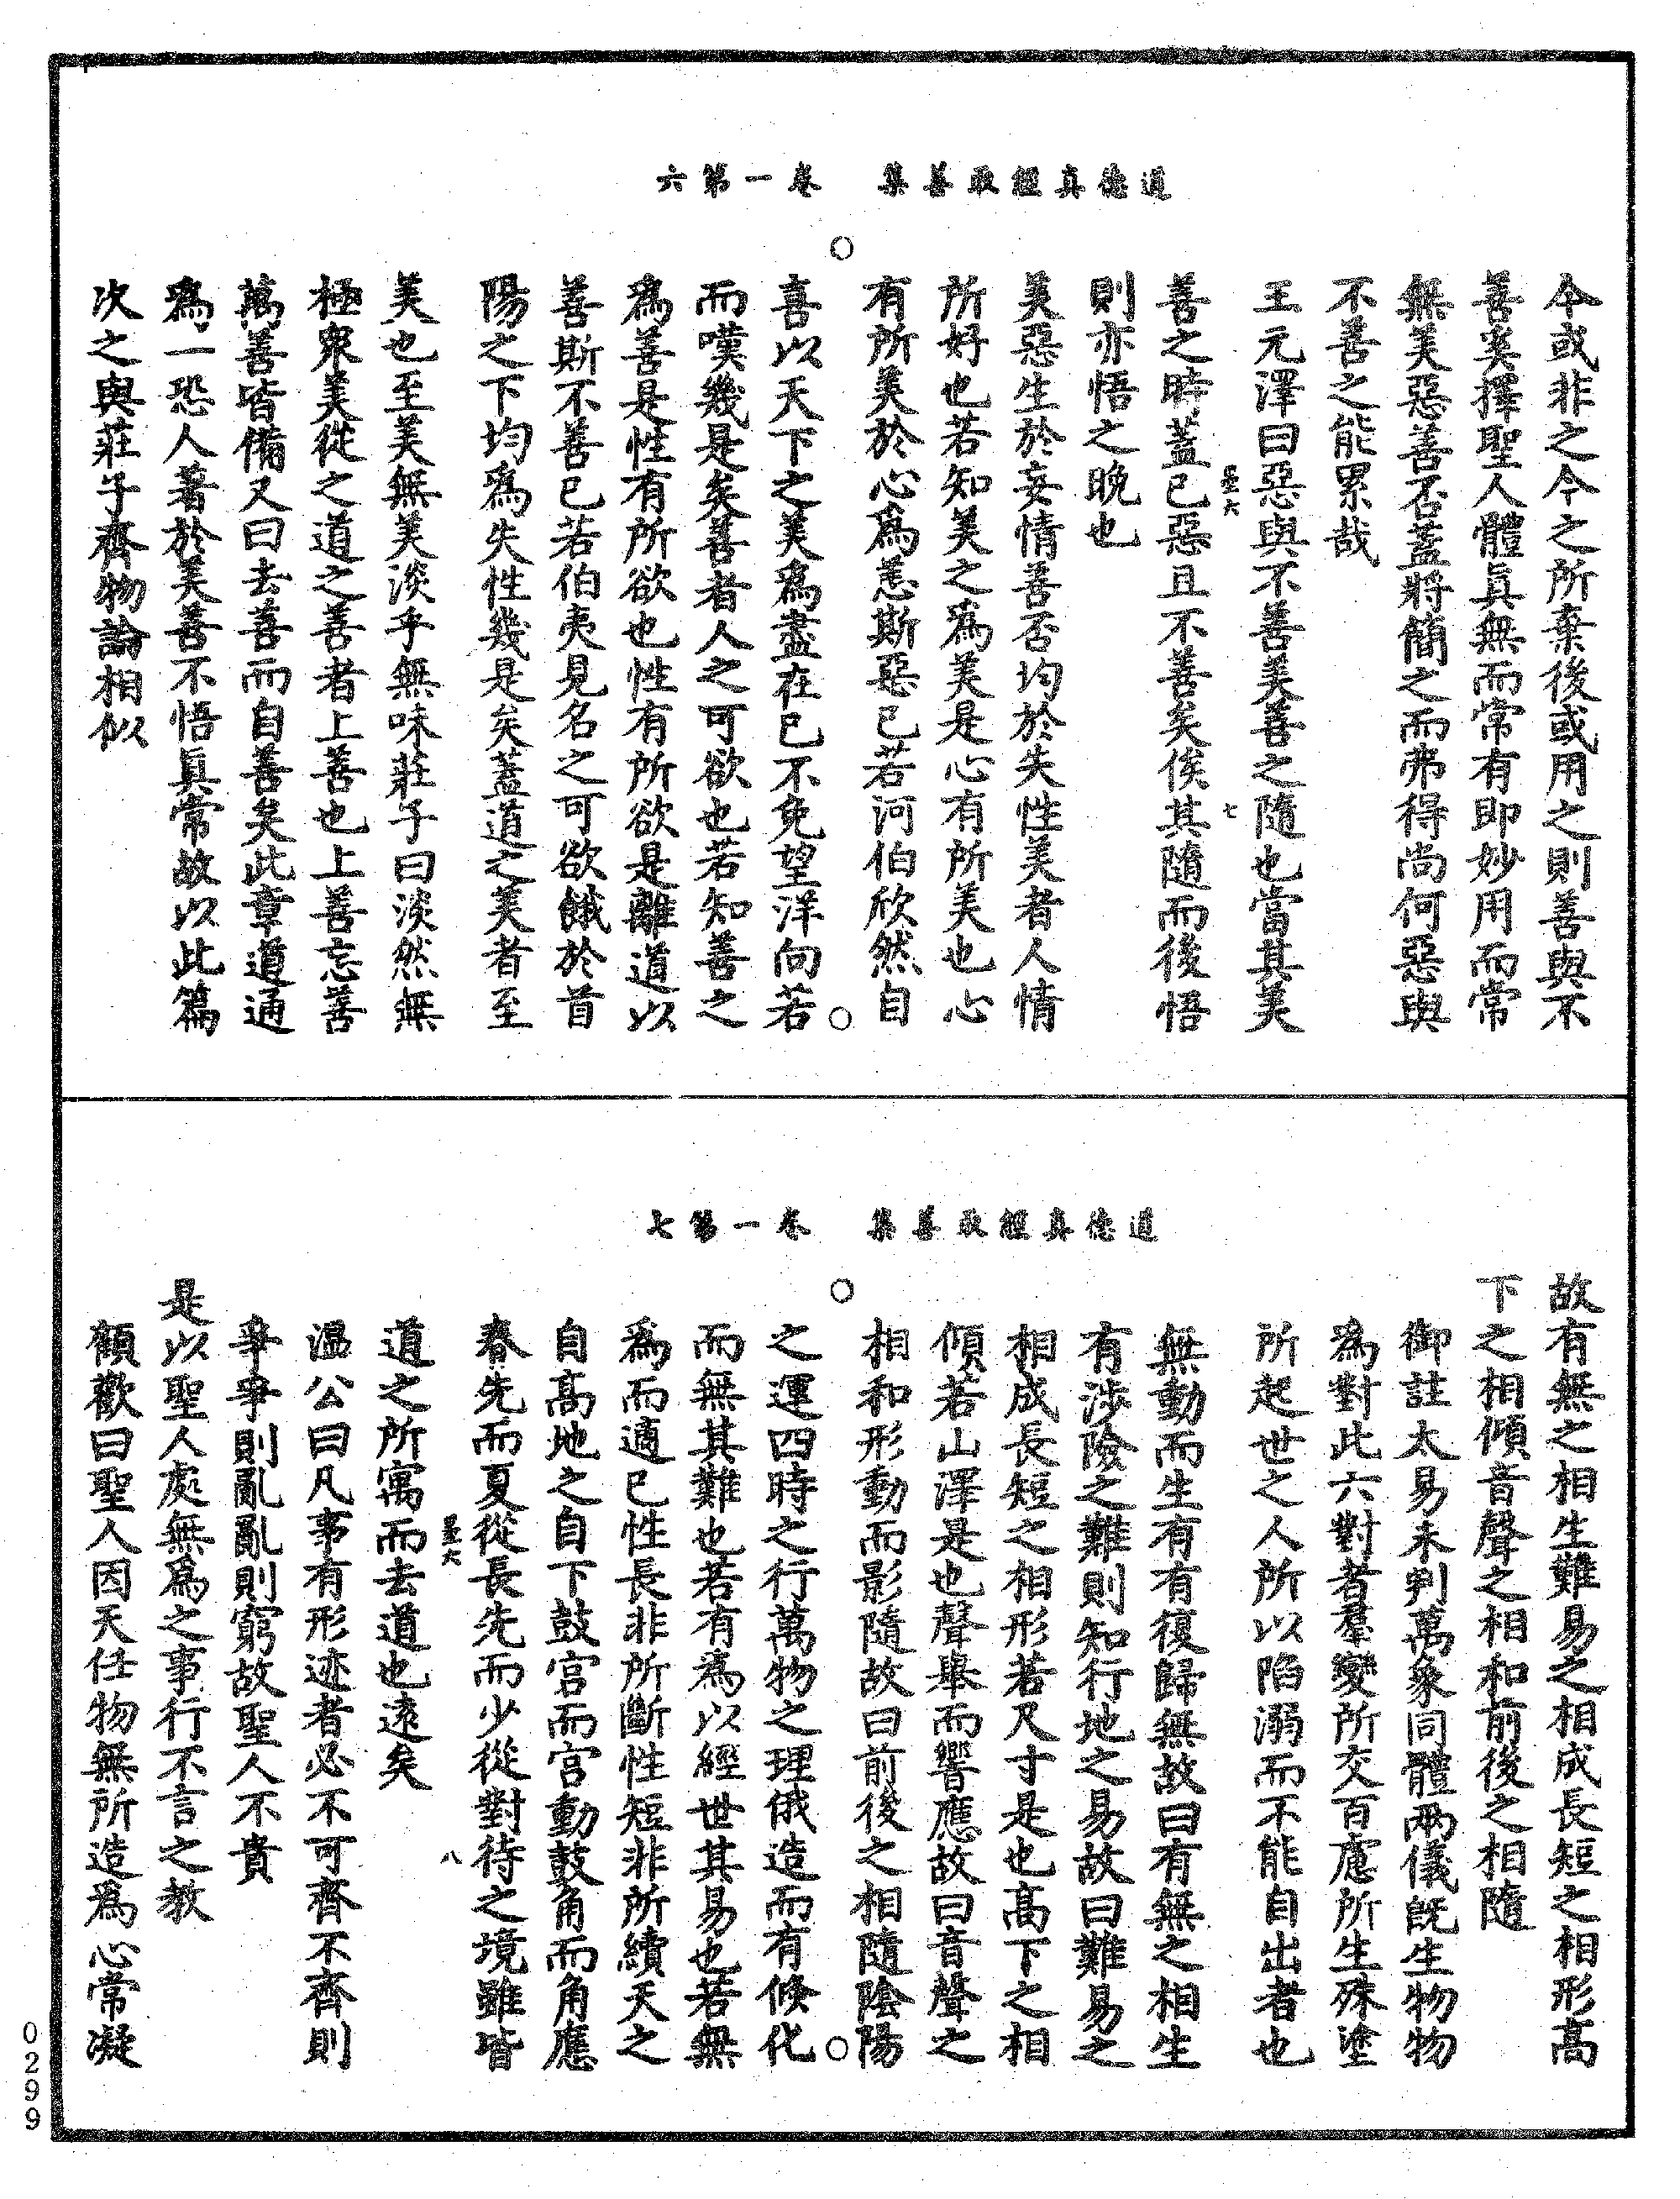 道德真經取善集　卷一第六
今或非之今之所棄後或用之則善與不
善奚擇聖人體眞無而常有即妙用而常
無美惡善否蓋將簡之而弗得尚何惡與
不善之能累哉
王元澤曰惡與不善美善之隨也當其美
墨六　七
善之時蓋已惡且不善矣俟其隨而後悟
則亦悟之晚也
美惡生於妄情善否均於失性美者人情
所好也若知美之爲美是心有所美也心
有所美於心爲恙斯惡已若河伯欣然自
喜以天下之美爲盡在已不免望洋向若
而嘆幾是矣善者人之可欲也若知善之
爲善是性有所欲也性有所欲是離道以
善斯不善已若伯夷見名之可欲餓於首
陽之下均爲失性幾是矣蓋道之美者至
美也至美無美淡乎無味莊子曰淡然無
極衆美從之道之善者上善也上善忘善
萬善皆備又曰去善而自善矣此章道通
爲一恐人著於美善不悟眞常故以此篇
次之與莊子齊物論相似
道德真經取善集　卷一第七
故有無之相生難易之相成長短之相形高
下之相傾音聲之相和前後之相隨
御註太易未判萬象同體兩儀旣生物物
爲對此六對者羣變所交百慮所生殊塗
所起世之人所以陷溺而不能自出者也
無動而生有有復歸無故曰有無之相生
有涉險之難則知行地之易故曰難易之
相成長短之相形若尺寸是也高下之相
傾若山澤是也聲舉而響應故曰音聲之
相和形動而影隨故曰前後之相隨陰陽
之運四時之行萬物之理俄造而有倏化
而無其難也若有爲以經世其易也若無
爲而適已性長非所斷性短非所續天之
自高地之自下鼓宮而宮動鼓角而角應
春先而夏從長先而少從對待之境雖皆
墨六　八
道之所寓而去道也遠矣
溫公曰凡事有形迹者必不可齊不齊則
爭爭則亂亂則窮故聖人不貴
是以聖人處無爲之事行不言之教
顧歡曰聖人因天任物無所造爲心常凝
0299